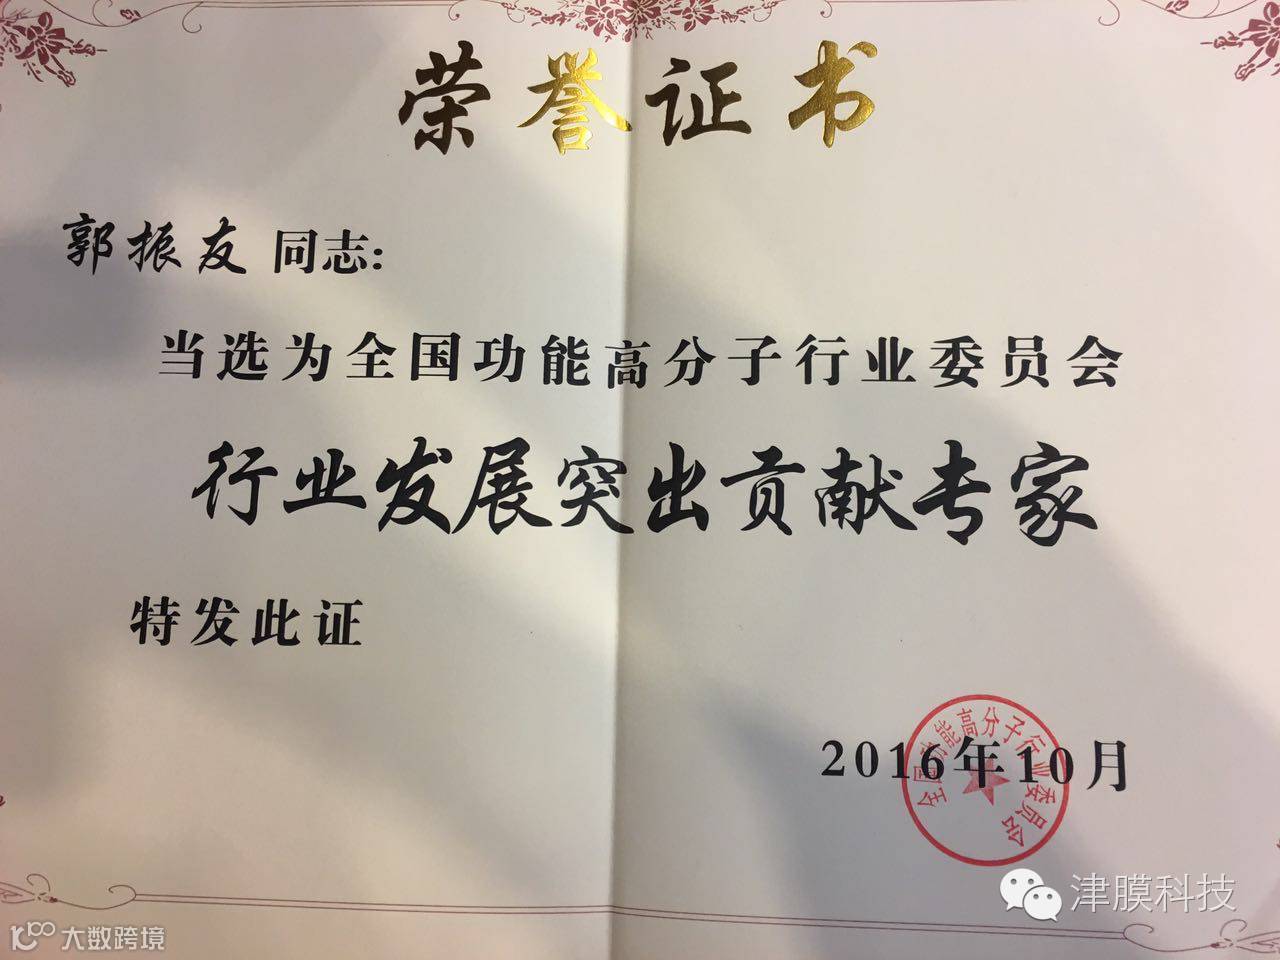 荣誉证书
郭振友 同志:
当选为全国功能高分子行业委员会
行业发展突出贡献专家
特发此证
2016年10月
全国功能高分子行业委员会
津膜科技
10100 大数跨境